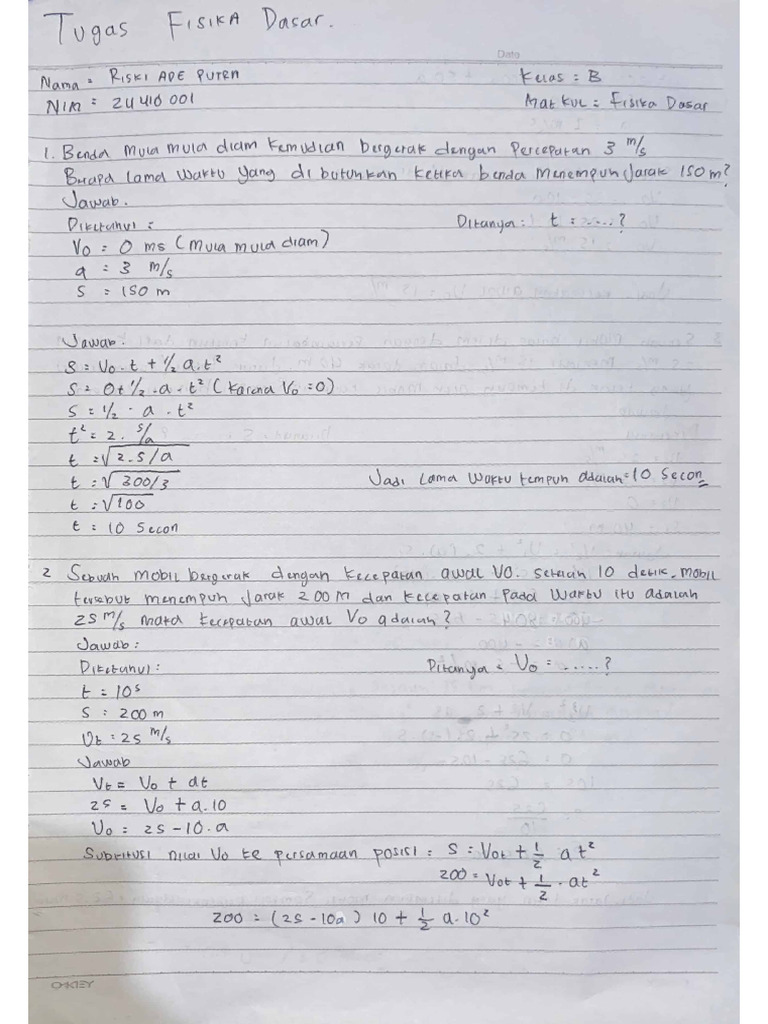 Tugas FISIKA Dasar.
Date
Nama : RISKI ADE PUTRA
Kelas : B
NIM : 24410001
Matkul : Fisika Dasar
1. Benda mula mula diam kemudian bergerak dengan Percepatan 3 m/s
Brapa lama waktu yang di butuhkan ketika benda menempuh Jarak 150 m?
Jawab.
Diketahui :
Ditanya : t = .....?
Vo = 0 ms (mula mula diam)
a = 3 m/s
S = 150 m
Jawab.
S = Vo . t + 1/2 a.t²
S = 0 + 1/2 . a . t² (Karena Vo = 0)
S = 1/2 . a . t²
t² = 2 . S/a
t = √2.S/a
t = √300/3
Jadi lama waktu tempuh adalah = 10 Secon
t = √100
t = 10 Secon
2 Sebuah mobil bergerak dengan kecepatan awal VO. setelah 10 detik, mobil
tersebut menempuh Jarak 200 M dan kecepatan pada waktu itu adalah
25 m/s maka kecepatan awal Vo adalah?
Jawab :
Diketahui :
Ditanya = Vo = .....?
t = 10s
S = 200 m
Vt = 25 m/s
Jawab
Vt = Vo + at
25 = Vo + a.10
Vo = 25 - 10 . a
Subtitusi nilai Vo ke persamaan posisi : S = Vot + 1/2 at²
200 = Vot + 1/2 . at²
200 = (25 - 10a) 10 + 1/2 a.10²